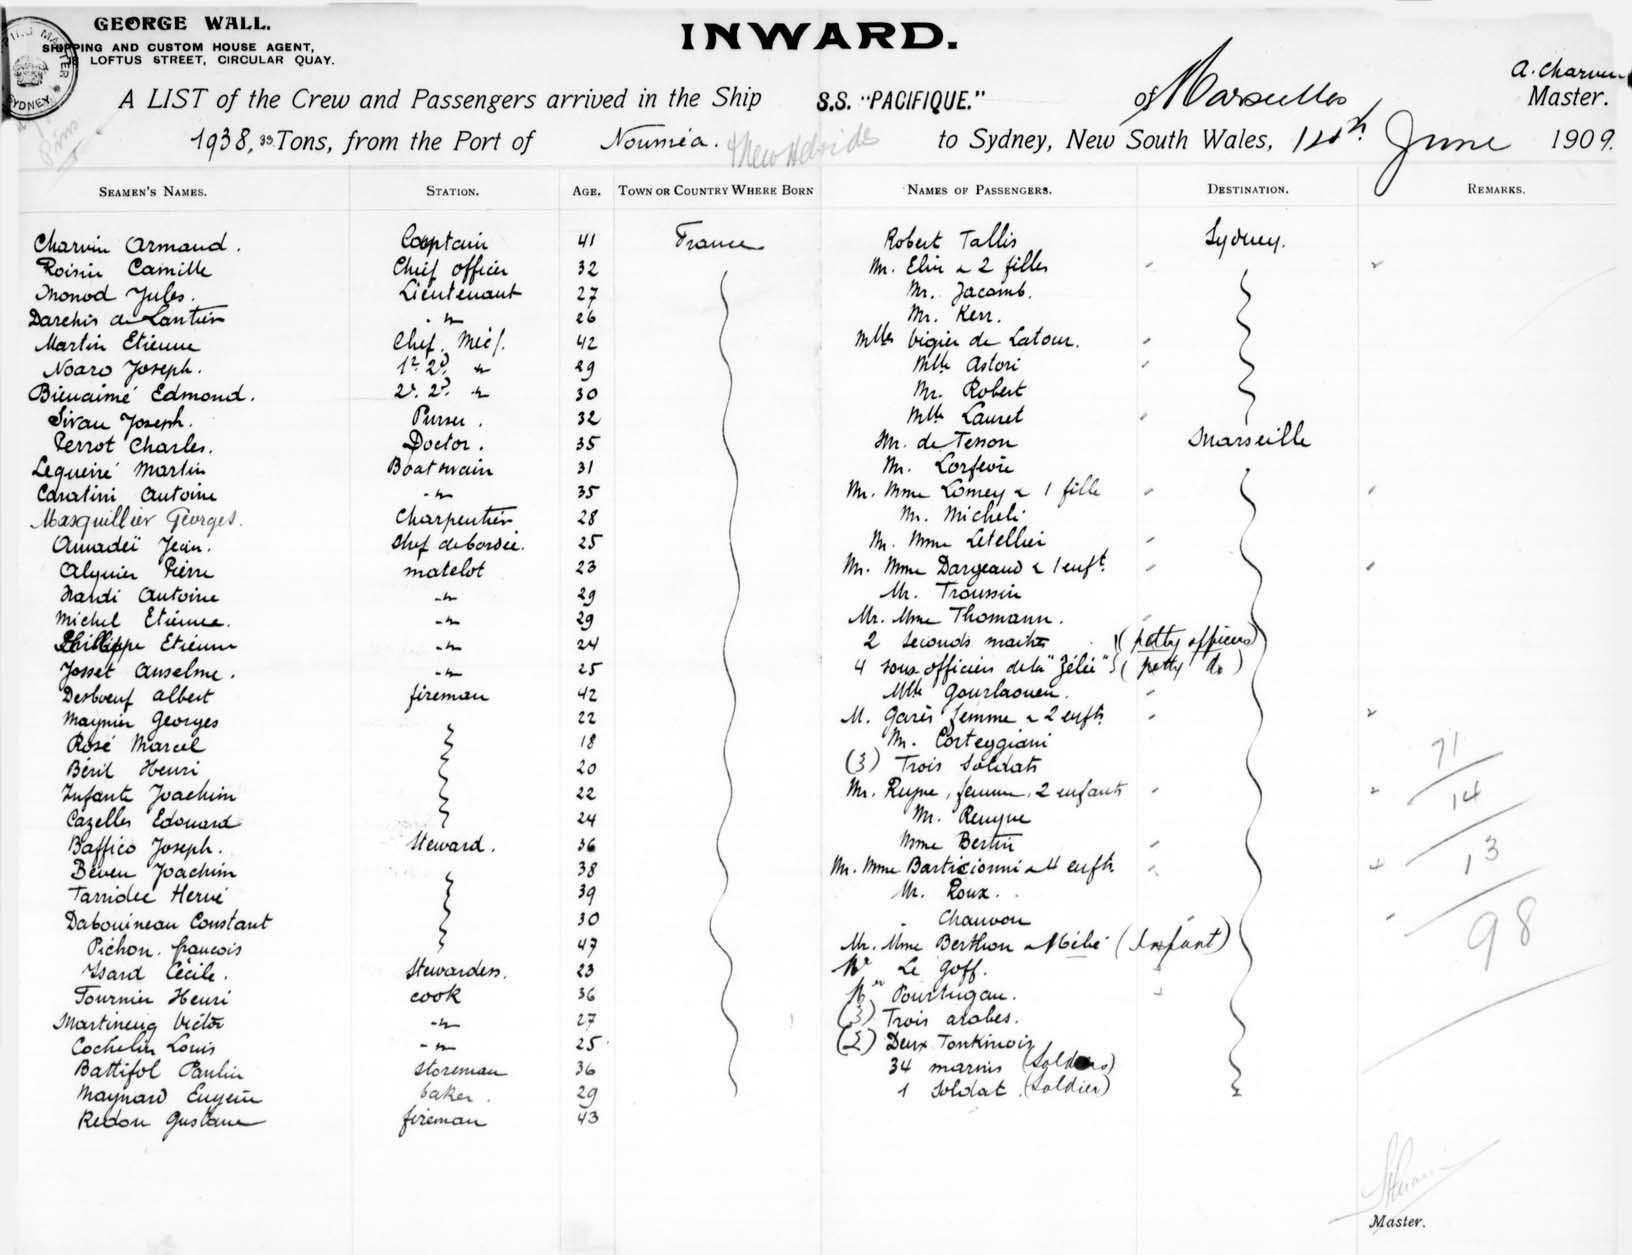 GEORGE WALL.
SHIPPING AND CUSTOM HOUSE AGENT,
LOFTUS STREET, CIRCULAR QUAY.
INWARD.
A. Charvin
Master.
A LIST of the Crew and Passengers arrived in the Ship S.S. "PACIFIQUE." of Marseilles
1938, 99 Tons, from the Port of Nouméa. & New Hebrides to Sydney, New South Wales, 14th June 1909.
SEAMEN'S NAMES. STATION. AGE. TOWN OR COUNTRY WHERE BORN NAMES OF PASSENGERS. DESTINATION. REMARKS.
Charvin Armand. Captain 41 France Robert Tallis Sydney.
Roisin Camille Chief officer 32 Mr. Elin & 2 filles
Monod Jules. Lieutenant 27 Mr. Jacomb.
Darchis de Lantier -"- 26 Mr. Kerr.
Martin Etienne Chef. Méc. 42 Mlles Vigier de Latour.
Noaro Joseph. 1r. 2d. " 29 Mlle Astori
Bienaimé Edmond. 2e. 2d. " 30 Mr. Robert
Sivan Joseph. Purser. 32 Mlle Lauret
Perrot Charles. Doctor. 35 Mr. de Tesson Marseille
Lequeiré Martin Boatswain 31 Mr. Lorfevre
Caratini Antoine -"- 35 Mr. Mme Lomey & 1 fille
Masquillier Georges. Charpentier 28 Mr. Micheli
Amadeï Jean. Chef de bordée. 25 Mr. Mme Letellier
Alquier Pierre matelot 23 Mr. Mme Dargeaud & 1 enft.
Nardi Antoine -"- 29 Mr. Troussin
Michel Etienne. -"- 29 Mr. Mme Thomann.
Phillippe Etienne -"- 24 2 seconds maitres (petty officers)
Josset Anselme. -"- 25 4 sous officiers de la "Zélée" (petty do)
Desboeuf Albert fireman 42 Mlle Gourlaouen.
Maynier Georges 22 M. Garès femme & 2 enfts
Rosé Marcel 18 Mr. Corteggiani
Béril Henri 20 (3) Trois soldats
Infante Joachim 22 Mr. Ruyne, femme, 2 enfants
Cazelles Edouard 24 Mr. Reuyne
Baffico Joseph. Steward. 36 Mme Bertin
Beven Joachim 38 Mr. Mme Barticionni & 4 enfts
Tarridec Hervé 39 Mr. Roux.
Dabouineau Constant 30 " Chauvou
Pichon. françois 47 Mr. Mme Berthon & 1 bébé (Infant)
Isard Cécile. Stewardess. 23 Mr Le Goff.
Tournier Henri cook 36 Pourtugau.
Martinenq Victor -"- 27 (3) Trois arabes.
Cochelin Louis -"- 25 (2) Deux Tonkinois
Battifol Paulin storeman 36 34 marins (soldiers)
Maynard Eugène baker. 29 1 soldat. (Soldier)
Redon Gustave fireman 43
71
14
13
98
Master.